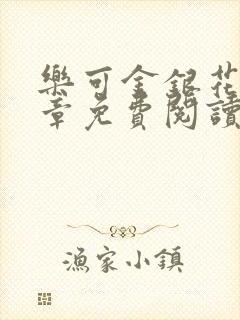 樂可金銀花
章免費閱讀
漁家小鎮